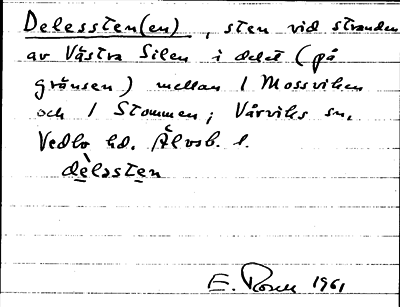 Delessten(en), sten vid stranden
av Västra Silen i delet (på
gränsen) mellan 1 Mossviken
och 1 Stommen; Vårviks sn.
Vedbo hd. Älvsb. l.
dèlessten
E. 1961